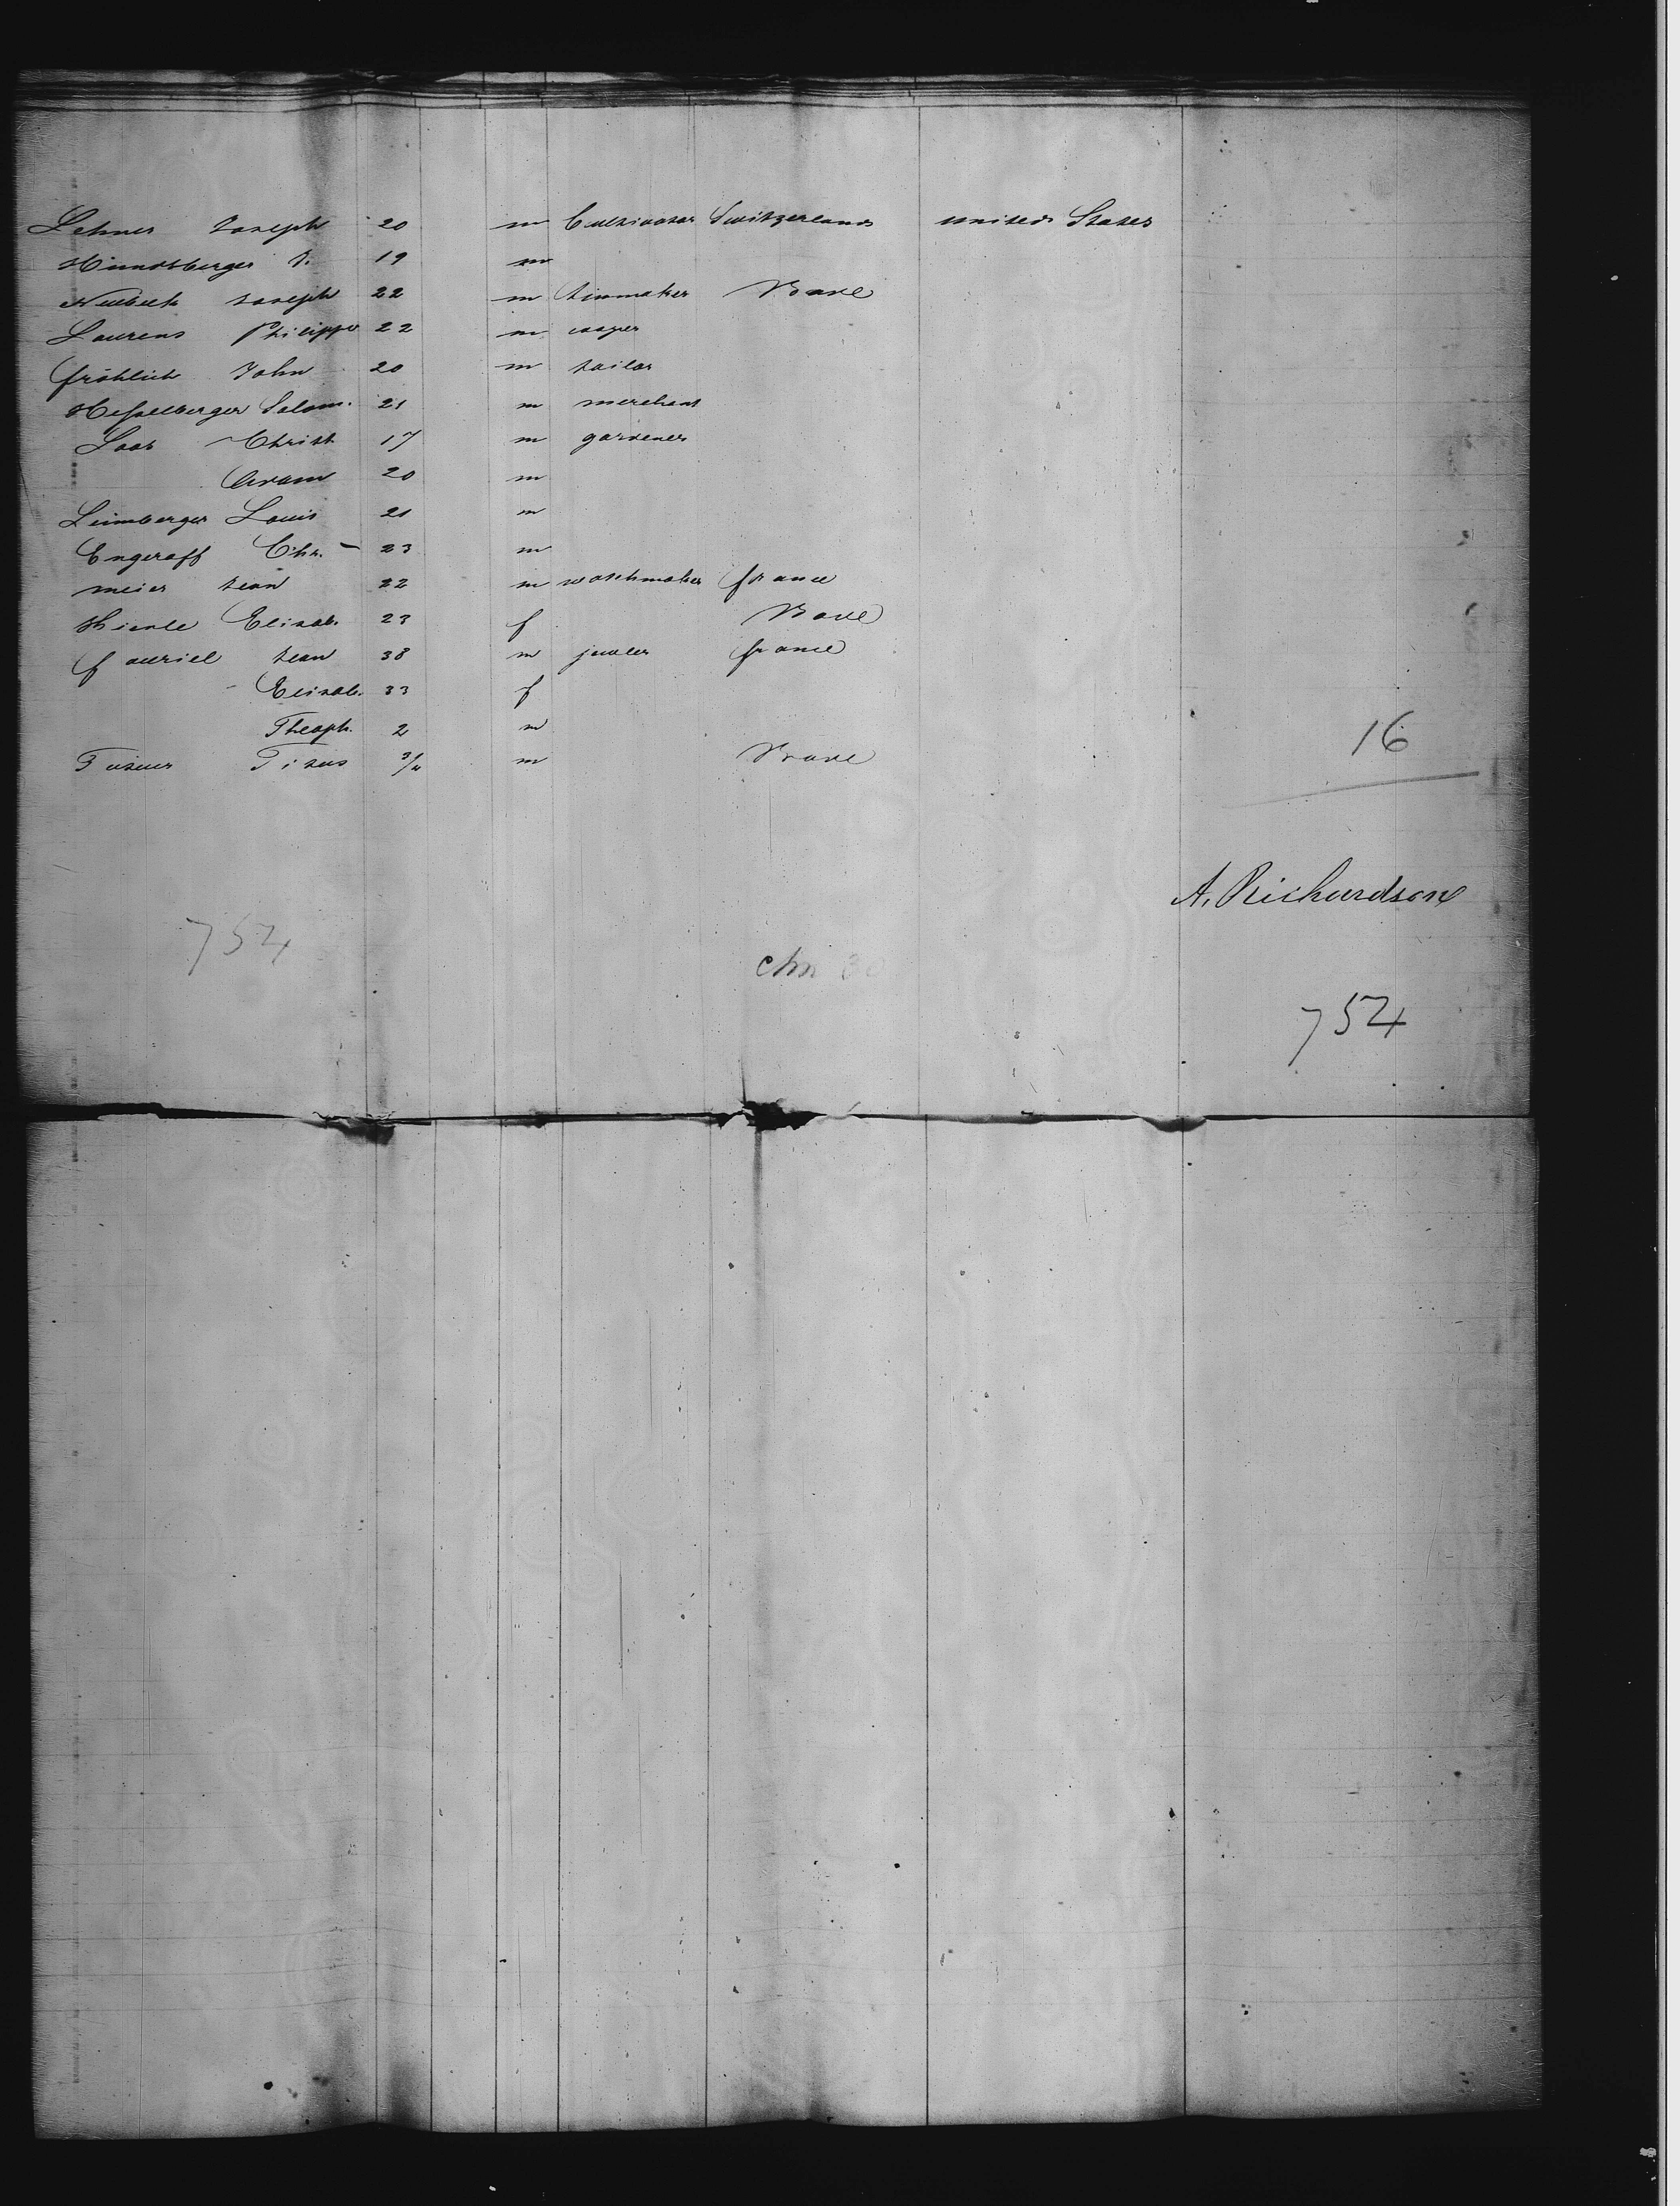 Lehner Joseph 20 m Cultivator Switzerland united States
Hundsberger J. 19 m
Neubeck Joseph 22 m tinmaker Bade
Laurens Philippe 22 m cooper
fröhlich John 20 m tailor
Hesselberger Salom. 21 m merchant
Laos Christ 17 m gardener
Adam 20 m
Leimberger Louis 21 m
Engeraff Chr. 23 m
meier Jean 22 m watchmaker france
Hienle Elisab. 23 f Bade
fauriel Jean 38 m jeweler france
Elisab. 33 f
Theoph. 2 m
16
Titus 3/4 m Bade
A. Richardson
754
chn 30
754